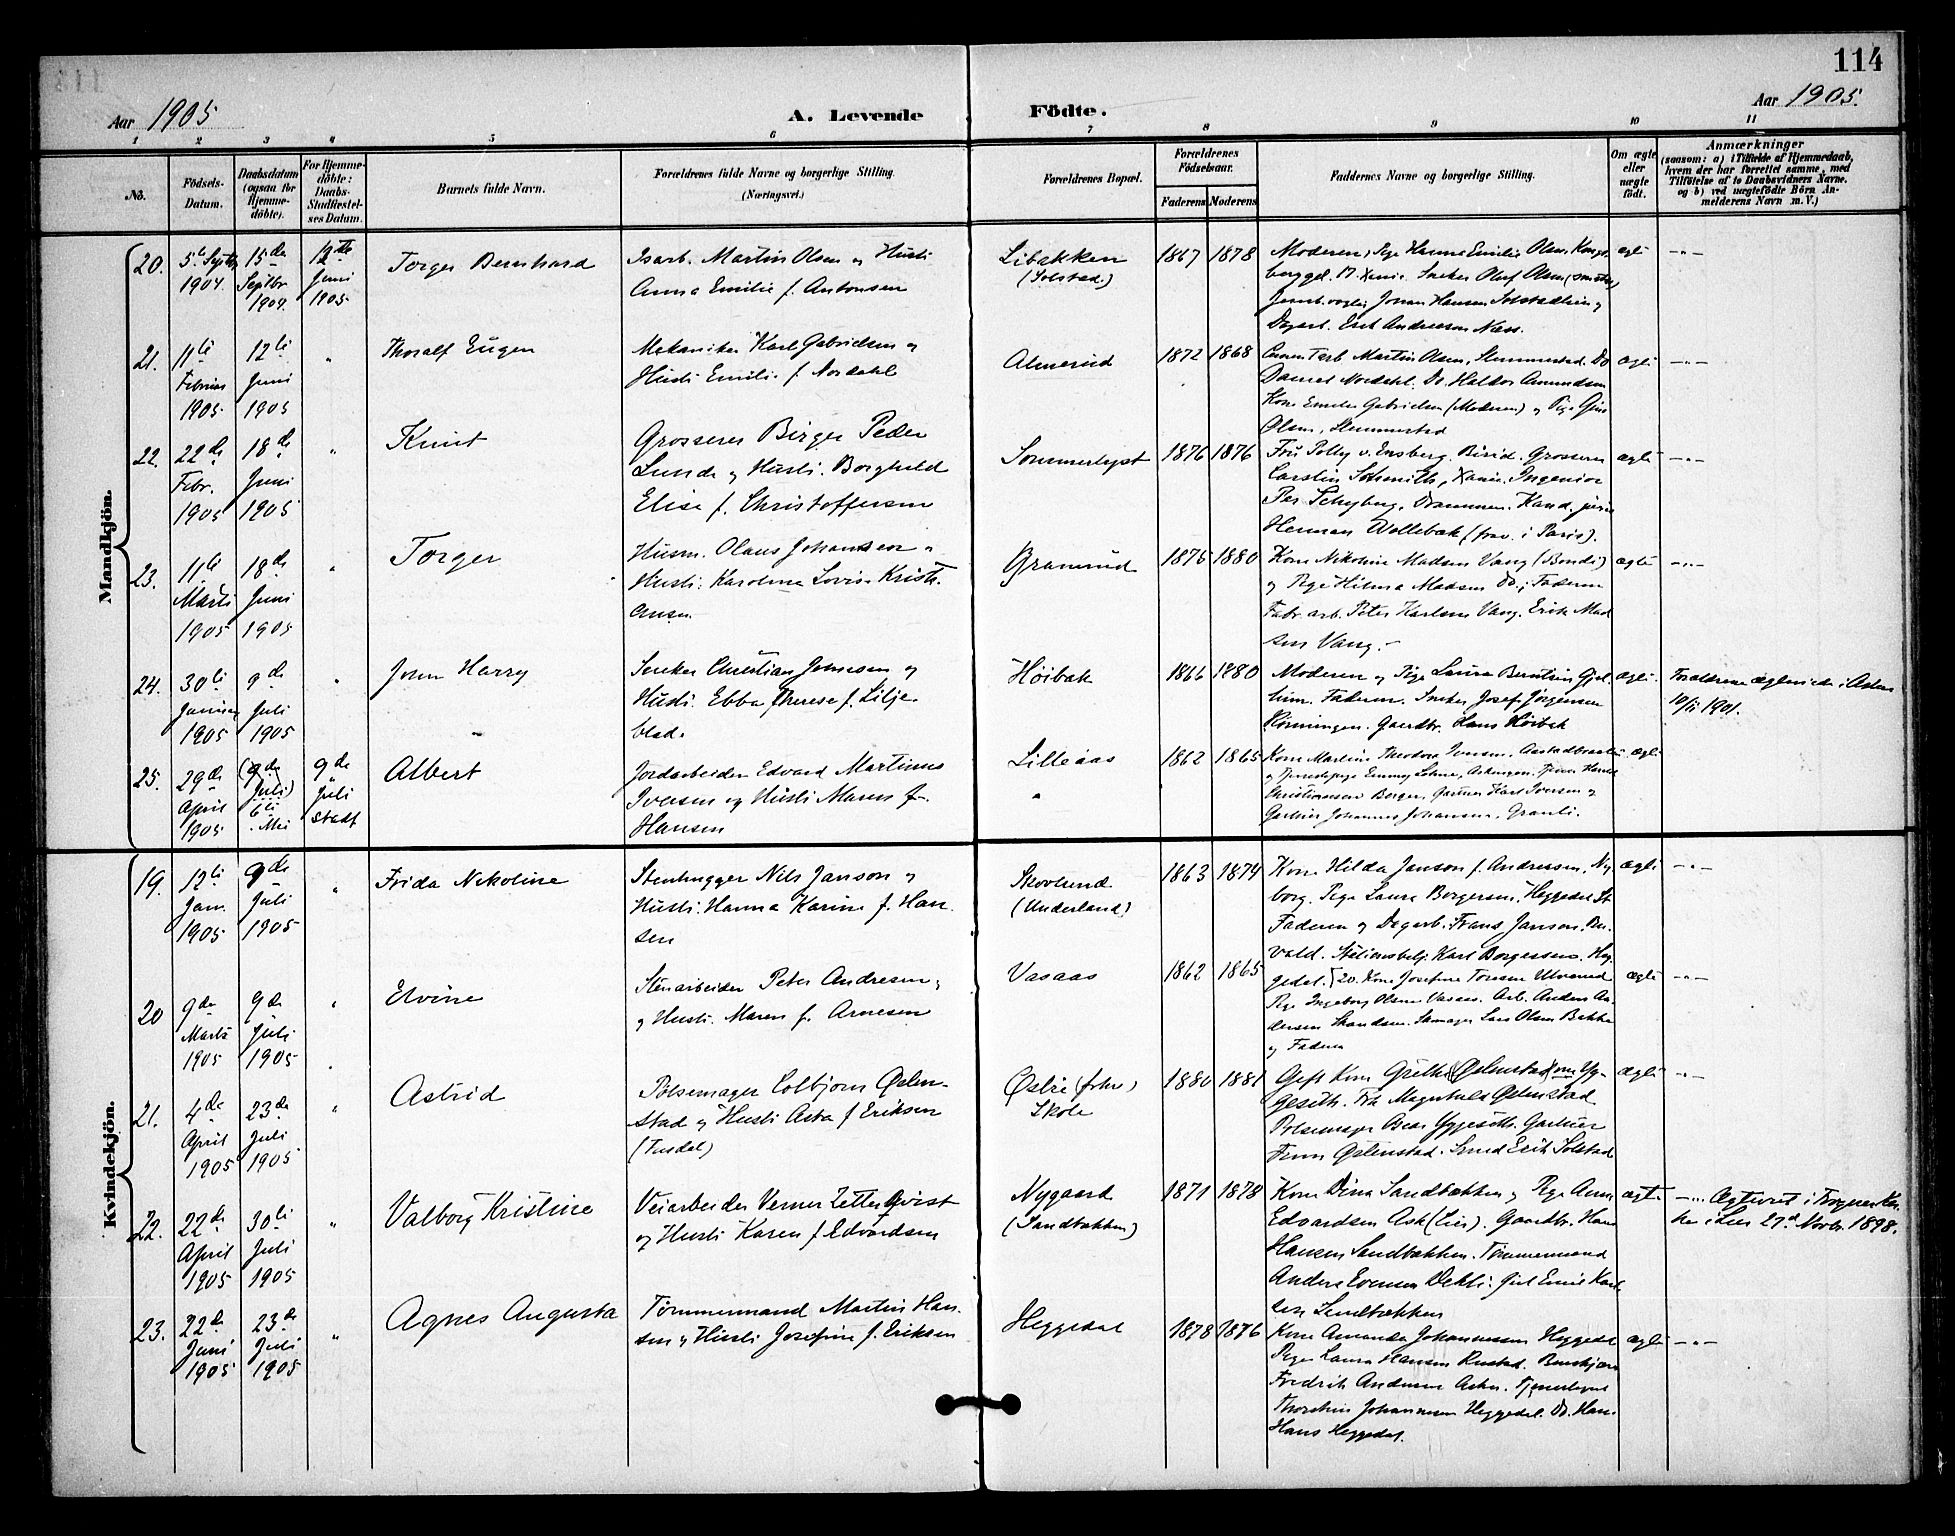 114
Aar 1905
A. Levende Födte.
Aar 1905.
1 2 3 4 5 6 7 8 9 10 11
No.
Födsels-Datum.
Daabsdatum (ogsaa for Hjemme-döbte).
For Hjemme-döbte: Daabs-Stadfæstel-ses Datum.
Barnets fulde Navn.
Forældrenes fulde Navne og borgerlige Stilling. (Næringsvei.)
Forældrenes Bopæl.
Forældrenes Födselsaar.
Faderens Moderens
Faddernes Navne og borgerlige Stilling.
Om ægte eller uægte födt.
Anmærkninger
(saasom: a) i Tilfælde af Hjemmedaab, hvem der har forrettet samme, med Tilföielse af to Daabsvidners Navne, og b) ved uægtefödte Börn An-melderens Navn m. V.)
Mandkjön.
20.
5te Septbr
1904.
15de
Septbr
1904.
12te
Juni
1905
Torger Bernhard
Isarb. Martin Olsen og Hustr.
Anna Emilie f. Antonsen
Libakken
(Solstad.)
1867 1878
Moderen, Pige Hanne Emilie Olsen
Snekker Oluf Olsen
Johan Hansen Solstad
Dagarb. Erik Andreasen Næss.
ægte
21.
11te
Februar
1905
12te
Juni
1905
Thoralf Eugen
Mekaniker Karl Gabrielsen og
Hustr. Emilie f. Nordahl
Almerud
1872 1868
Martin Olsen, Slemmestad. Do
Daniel Nordahl. Do. Haldor Amundsen
Kone Emilie Gabrielsen (Moderen) og Pige
Olsen, Slemmestad
ægte
22.
22de
Febr.
1905
18de
Juni
1905
Knut
Grosserer Birger Peder
Lunde og Hustr. Borghild
Elise f. Christoffersen
Sommerlyst
1876 1876
Fru Polly v. Ensberg. Birid. Grosserer
Carstin Schmith, Xania. Ingeniør
Per Schyberg, Drammen. Kand. juris
Herman Wollebæk (frav. i Paris).
ægte
23.
11te
Marts
1905
18de
Juni
1905
Torger
Husm. Olaus Johansen og
Hustr. Karoline Lovise Kristi-
ansen
Granerud
1876 1880
Kone Nikoline Madsen Vang (Bondi)
og Pige Hilma Madsen Do, Faderen
Fabr. arb. Peter Karlsen Vang. Erik Mad
sen Vang. -
ægte
24.
30te
Januar
1905
9de
Juli
1905
John Harry
Snekker Christian Johnsen og
Hustr. Ebba Therese f. Lilje-
blad.
Höibak
1866 1880
Moderen og Pige Laura Berntsen
Faderen. Snekker Josef Jörgensen
Gaardbr. Hans Höibak
ægte
Forældrene ægteviede i Asker
10/11 1901.
25.
29de
April
1905
(9de
Juli)
6te
Mai
9de
Juli
stadf
Albert
Jordarbeider Edvard Martinus
Iversen og Hustr. Maren f.
Hansen
Lilleaas
1862 1865
Kone Martine Theodora Iversen
og Tjenestepige Emmy
Christiansen Borgen, Gartner Karl Iversen og
Gartner Johannes Johansen, Granli.
ægte
Kvindekjön.
19.
12te
Jan.
1905
9de
Juli
1905
Frida Nikoline
Stenhugger Nils Janson og
Hustr. Hanna Karine f. Han-
sen
Skovlund
(Underland)
1863 1874
Kone Hilda Janson f. Andressen, Ny
borg. Pige Laura Borgersen, Heggedal St
Faderen og Dagarb. Frans Janson
vald. Stationsbetj. Karl Borgersen. Heg
gedal.
ægte
20
9de
Marts
1905
9de
Juli
1905
Elvine
Stenarbeider Peter Andresen
og Hustr. Maren f. Arnesen
Vasaas
1862 1865
20. Kone Josefine Toresen
Pige Ingeborg Olsen Vasaas. Arb. Anders An
dersen Skandsen. Skomager Lars Olsen Bakke
og Faderen
ægte
21.
4de
April
1905
23de
Juli
1905
Astrid
Pölsemager Colbjørn Oslen-
stad og Hustr. Asta f. Eriksen
(Tusdal)
Østre (forhv)
Skole
1880 1881
Gift Kone Grethe
Gartner
Smed Erik Solstad
ægte
22.
22de
April
1905
30te
Juli
1905
Valborg Kristine
Veiarbeider Verner Zetterqvist
og Hustr. Karen f. Edvardsen
Nygaard
(Sandbækken)
1871 1878
Kone Dina Sandbækken og Pige Anna
Edvardsen Ask (Lier). Gaardbr. Hans
Hansen Sandbækken. Tömmermand
Anders Evensen Dehli.
Sandbækken
ægte
Ægteviet i Frogner Kir
ke i Lier 27de Novbr. 1898.
23.
22de
Juni
1905
23de
Juli
1905
Agnes Augusta
Tömmermand Martin Han-
sen og Hustr. Josefine f. Eriksen
Heggedal
1878 1876
Kone Amanda Johannessen Heggedal
Pige Laura Hansen Rustad.
Fredrik Andersen Asker.
Thorstein Johannessen Heggedal. Do. Hans
Hans Heggedal.
ægte